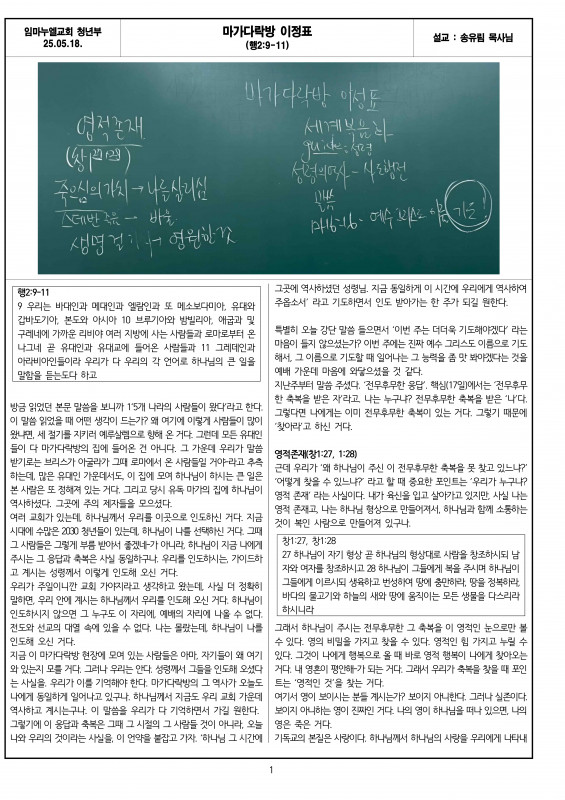 임마누엘교회 청년부
25.05.18.
마가다락방 이정표
(행2:9-11)
설교 : 송유림 목사님
마가다락방 이정표
영적존재
(창1:27,28)
죽음심의 가치 → 나를살리심
스데반 죽음 - 바울
생명걸기 → 영원한것
세계복음화
guide : 성령
성령의역사 - 사도행전
말씀
마16:16 - 예수 그리스도 이름 기도!
행2:9-11
9 우리는 바대인과 메대인과 엘람인과 또 메소보다미아, 유대와
갑바도기아, 본도와 아시아 10 브루기아와 밤빌리아, 애굽과 및
구레네에 가까운 리비야 여러 지방에 사는 사람들과 로마로부터 온
나그네 곧 유대인과 유대교에 들어온 사람들과 11 그레데인과
아라비아인들이라 우리가 다 우리의 각 언어로 하나님의 큰 일을
말함을 듣는도다 하고
방금 읽었던 본문 말씀을 보니까 '15개 나라의 사람들이 왔다'라고 한다.
이 말씀 읽었을 때 어떤 생각이 드는가? 왜 여기에 이렇게 사람들이 많이
왔냐면, 세 절기를 지키러 예루살렘으로 향해 온 거다. 그런데 모든 유대인
들이 다 마가다락방의 집에 들어온 건 아니다. 그 가운데 우리가 말씀
받기로는 브리스가 아굴라가 그때 로마에서 온 사람들일 거야~라고 추측
하는데, 많은 유대인 가운데서도, 이 집에 모여 하나님이 하시는 큰 일은
본 사람은 또 정해져 있는 거다. 그리고 당시 유독 마가의 집에 하나님이
역사하셨다. 그곳에 주의 제자들을 모으셨다.
여러 교회가 있는데, 하나님께서 우리를 이곳으로 인도하신 거다. 지금
시대에 수많은 2030 청년들이 있는데, 하나님이 나를 선택하신 거다. 그때
그 사람들은 그렇게 부름 받아서 좋겠네~가 아니라, 하나님이 지금 나에게
주시는 그 응답과 축복은 사실 동일하구나. 우리를 인도하시는, 가이드하
고 계시는 성령께서 이렇게 인도해 오신 거다.
우리가 주일이니깐 교회 가야지라고 생각하고 왔는데, 사실 더 정확히
말하면, 우리 안에 계시는 하나님께서 우리를 인도해 오신 거다. 하나님이
인도하시지 않으면 그 누구도 이 자리에, 예배의 자리에 나올 수 없다.
전도와 선교의 대열 속에 있을 수 없다. 나는 몰랐는데, 하나님이 나를
인도해 오신 거다.
지금 이 마가다락방 현장에 모여 있는 사람들은 아마, 자기들이 왜 여기
와 있는지 모를 거다. 그러나 우리는 안다. 성령께서 그들을 인도해 오셨다
는 사실을. 우리가 이를 기억해야 한다. 마가다락방의 그 역사가 오늘도
나에게 동일하게 일어나고 있구나. 하나님께서 지금도 우리 교회 가운데
역사하고 계시는구나. 이 말씀을 우리가 다 기억하면서 가길 원한다.
그렇기에 이 응답과 축복은 그때 그 시절의 그 사람들 것이 아니라, 오늘
나와 우리의 것이라는 사실을, 이 언약을 붙잡고 가자. '하나님 그 시간에
그곳에 역사하셨던 성령님. 지금 동일하게 이 시간에 우리에게 역사하여
주옵소서' 라고 기도하면서 인도 받아가는 한 주가 되길 원한다.
특별히 오늘 강단 말씀 들으면서 '이번 주는 더더욱 기도해야겠다' 라는
마음이 들지 않으셨는가? 이번 주에는 진짜 예수 그리스도 이름으로 기도
해서, 그 이름으로 기도할 때 일어나는 그 능력을 좀 맛 봐야겠다는 것을
예배 가운데 마음에 와닿으셨을 것 같다.
지난주부터 말씀 주셨다. '전무후무한 응답'. 핵심(17일)에서는 '전무후무
한 축복을 받은 자'라고. 나는 누구냐? 전무후무한 축복을 받은 '나'다.
그렇다면 나에게는 이미 전무후무한 축복이 있는 거다. 그렇기 때문에
'찾아라'고 하신 거다.
영적존재(창1:27, 1:28)
근데 우리가 '왜 하나님이 주신 이 전무후무한 축복을 못 찾고 있느냐?'
'어떻게 찾을 수 있느냐?' 라고 할 때 중요한 포인트는 '우리가 누구냐?
영적 존재' 라는 사실이다. 내가 육신을 입고 살아가고 있지만, 사실 나는
영적 존재고, 나는 하나님 형상으로 만들어져서, 하나님과 함께 소통하는
것이 복인 사람으로 만들어져 있구나.
창1:27, 창1:28
27 하나님이 자기 형상 곧 하나님의 형상대로 사람을 창조하시되 남
자와 여자를 창조하시고 28 하나님이 그들에게 복을 주시며 하나님이
그들에게 이르시되 생육하고 번성하여 땅에 충만하라, 땅을 정복하라,
바다의 물고기와 하늘의 새와 땅에 움직이는 모든 생물을 다스리라
하시니라
그래서 하나님이 주시는 전무후무한 그 축복을 이 영적인 눈으로만 볼
수 있다. 영의 비밀을 가지고 찾을 수 있다. 영적인 힘 가지고 누릴 수
있다. 그것이 나에게 행복으로 올 때 바로 영적 행복이 나에게 찾아오는
거다. 내 영혼이 평안해~가 되는 거다. 그래서 우리가 축복을 찾을 때 포인
트는 '영적인 것'을 찾는 거다.
여기서 영이 보이시는 분들 계시는가? 보이지 아니한다. 그러나 실존이다.
보이지 아니하는 영이 진짜인 거다. 나의 영이 하나님을 떠나 있으면, 나의
영은 죽은 거다.
기독교의 본질은 사랑이다. 하나님께서 하나님의 사랑을 우리에게 나타내
1